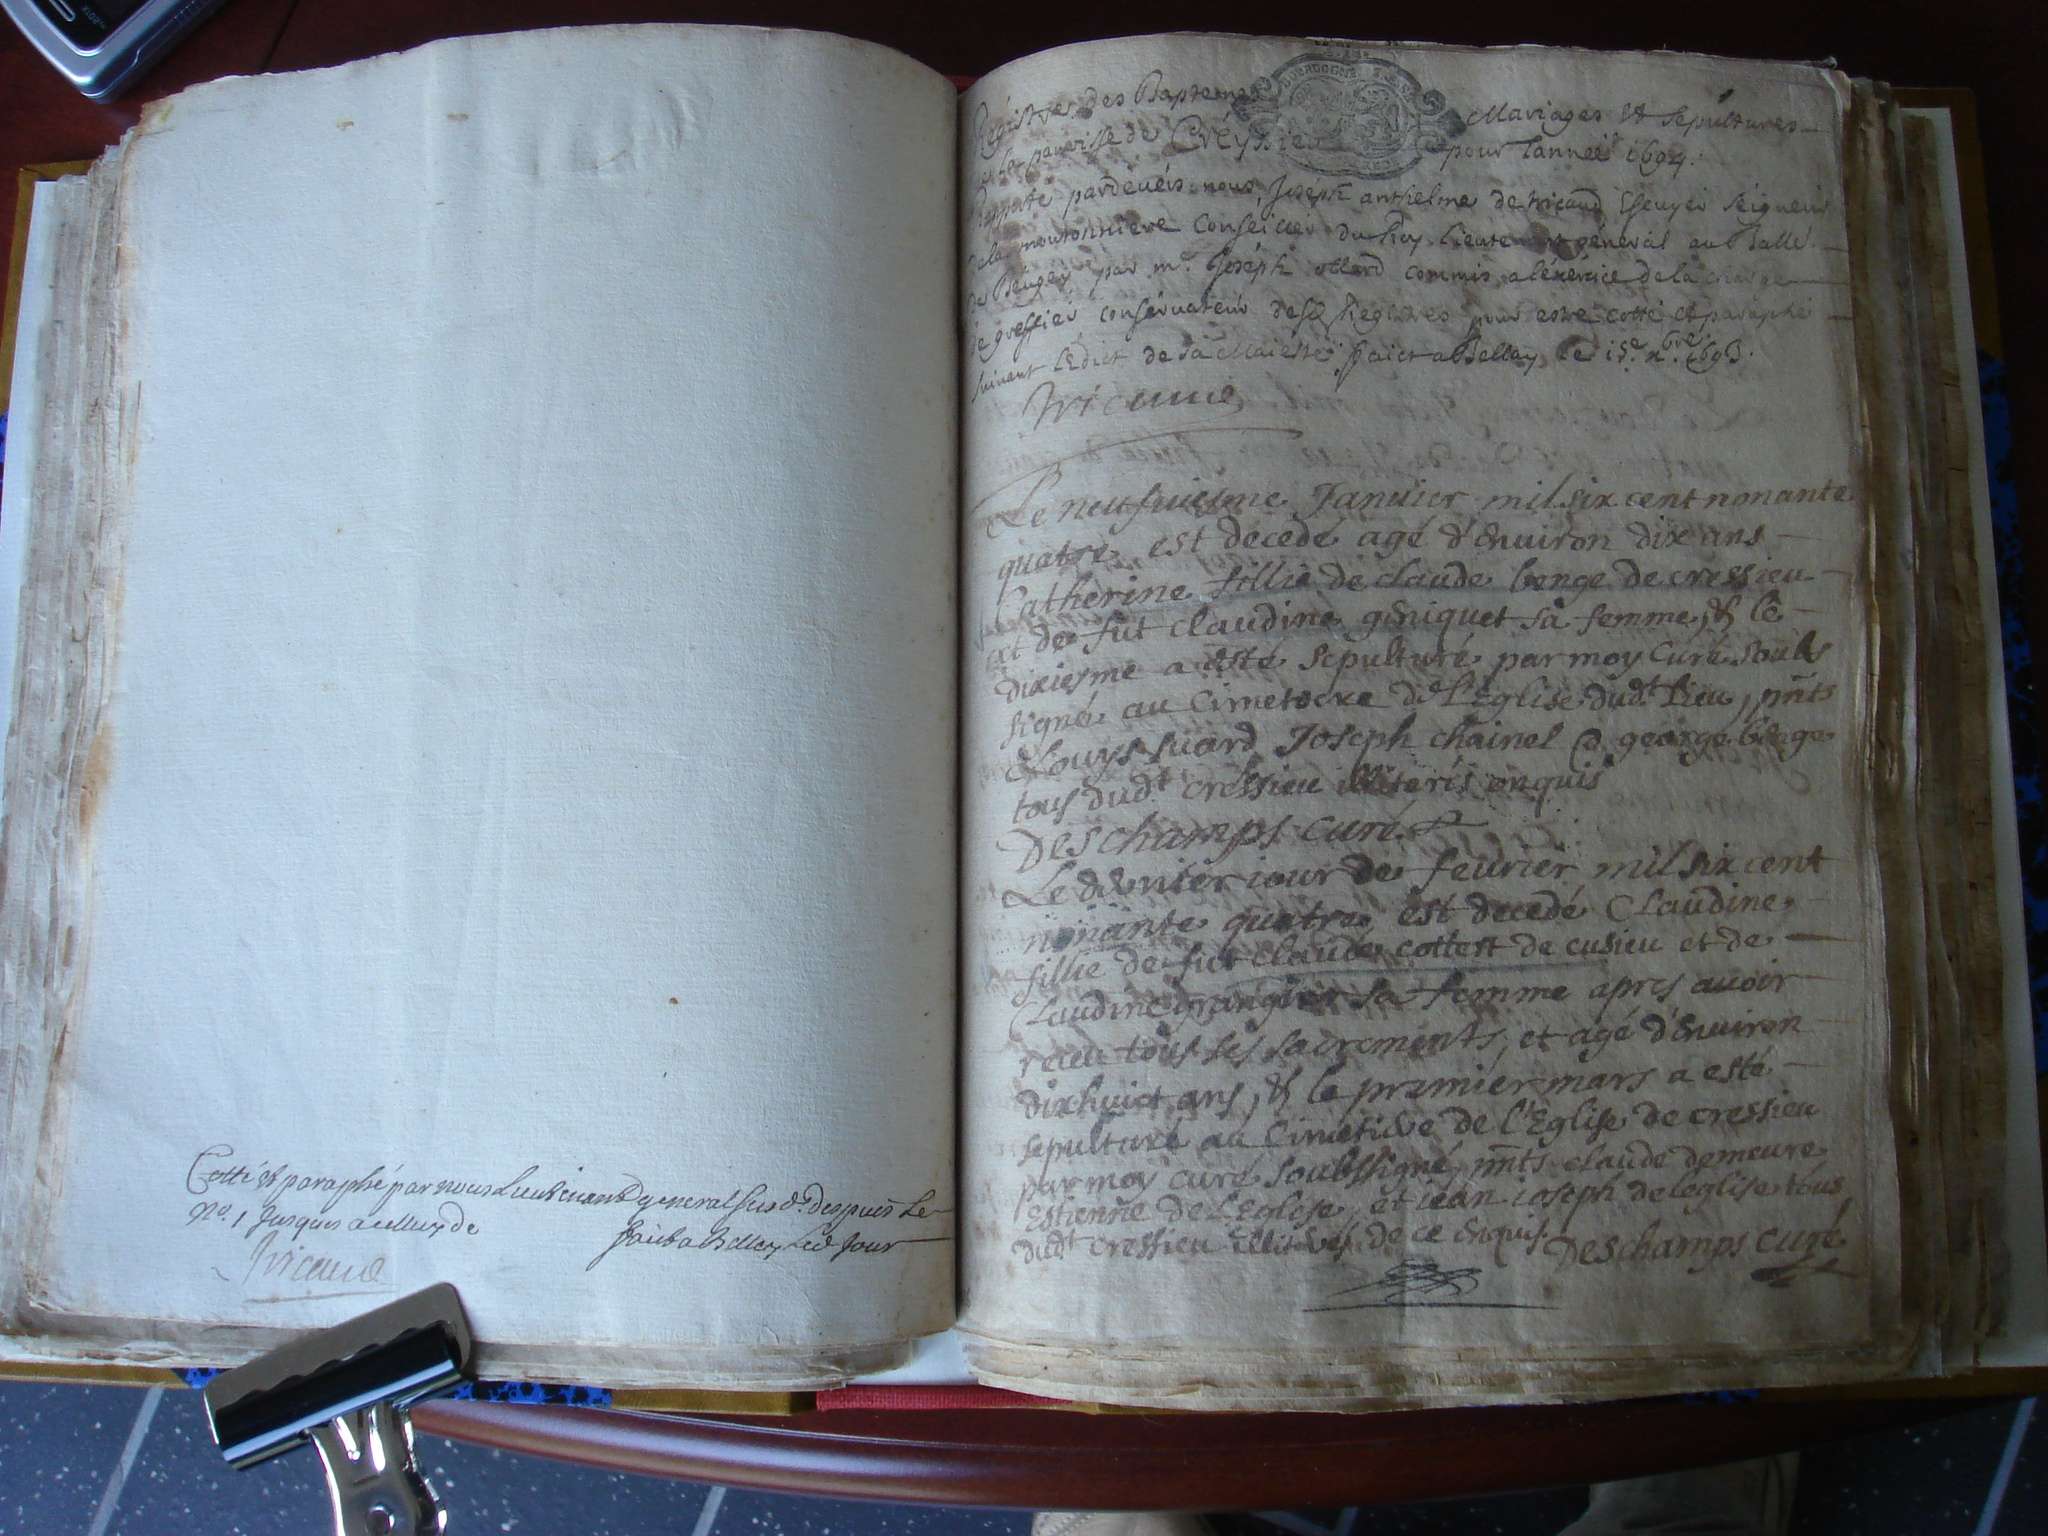 Cotté et paraphé par nous Lieutenant general susd. despuis Le
No. 1 Jusques a celluy de
fait a Belley Led Jour
Tricaud
Régistres des Baptemes Mariages Et sepultures
de la parroisse de Créyssieu pour l'année 1694.
pardeués nous Joseph anthelme de tricaud Escuyer seigneur
de la mouronniere Conseiller du Roy Lieutenant géneral au Balle.
de Beugey par mr. Joseph ollard commis a l'exércice de la charge
de greffier consérvateur desd Registres pour estre cotté et paraphé
suivant L'Edict de sa Maiesté, faict a Belley le 15e. xbre. 1693.
Tricaud
Le neufuiesme Januier mil six cent nonante
quatre est decedé agé d'Enuiron dix ans
Catherine fillie de claude benge de cressieu
ext de fut claudine giniquet sa femme, & le
dixiesme a esté sepulturé par moy Curé soubs
signé au Cimetoere de l'Eglise dudt Lieu, pnts
Louys suard Joseph chainel & george benge
tous dudt cressieu illiterés enquis
Deschamps curé
Le dernier iour de feurier mil six cent
nonante quatre est decedé Claudine
fillie de fut claude cottest de cusieu et de
Claudine grangier sa femme apres auoir
receu tous les sacrements, et agé d'Enuiron
dixhuict ans, & le premier mars a esté
sepulturé au Cimetiere de l'Eglise de cressieu
par moy curé soubssigné, pnts claude demeure
Estienne de L'Eglise, et iean ioseph de leglise tous
dudt cressieu illiterés de ce Enquis Deschamps curé